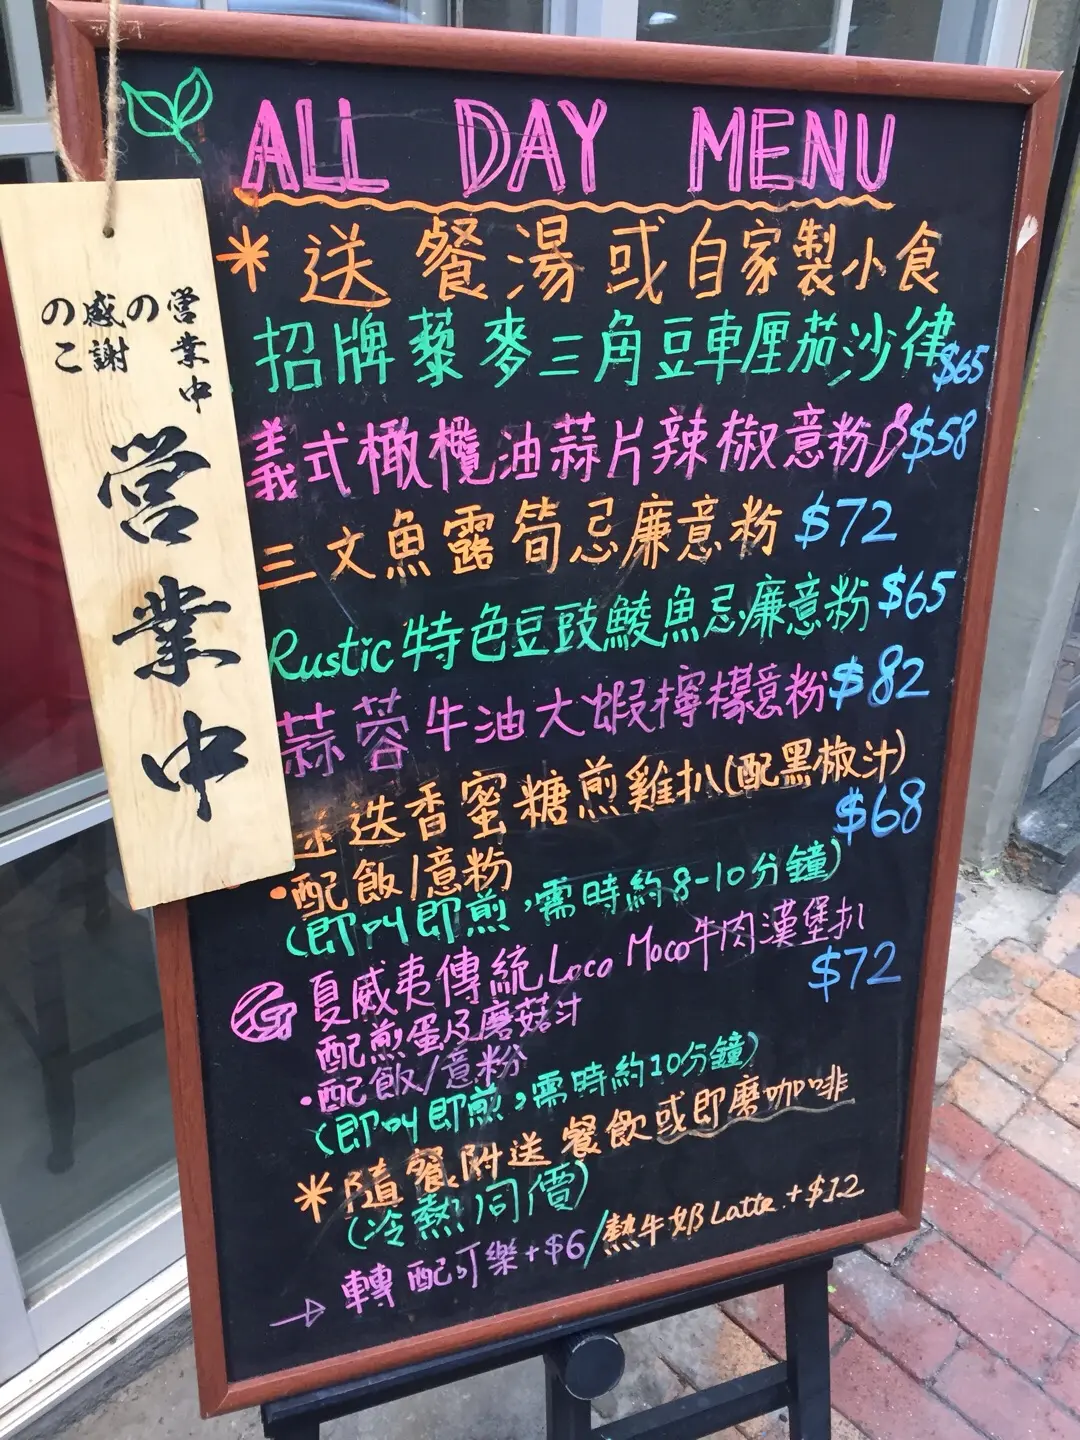 ALL DAY MENU
* 送餐湯或自家製小食
招牌藜麥三角豆車厘茄沙律 $65
義式橄欖油蒜片辣椒意粉 $58
三文魚露筍忌廉意粉 $72
Rustic 特色豆豉鯪魚忌廉意粉 $65
蒜蓉牛油大蝦檸檬意粉 $82
迷迭香蜜糖煎雞扒(配黑椒汁)
$68
•配飯/意粉
(即叫即煎，需時約8-10分鐘)
夏威夷傳統Loco Moco牛肉漢堡扒
$72
配煎蛋及磨菇汁
•配飯/意粉
(即叫即煎，需時約10分鐘)
* 隨餐附送餐飲或即磨咖啡
(冷熱同價)
→ 轉配可樂+$6/熱牛奶Latte +$12
営業中
の
感謝
のこ
営業中